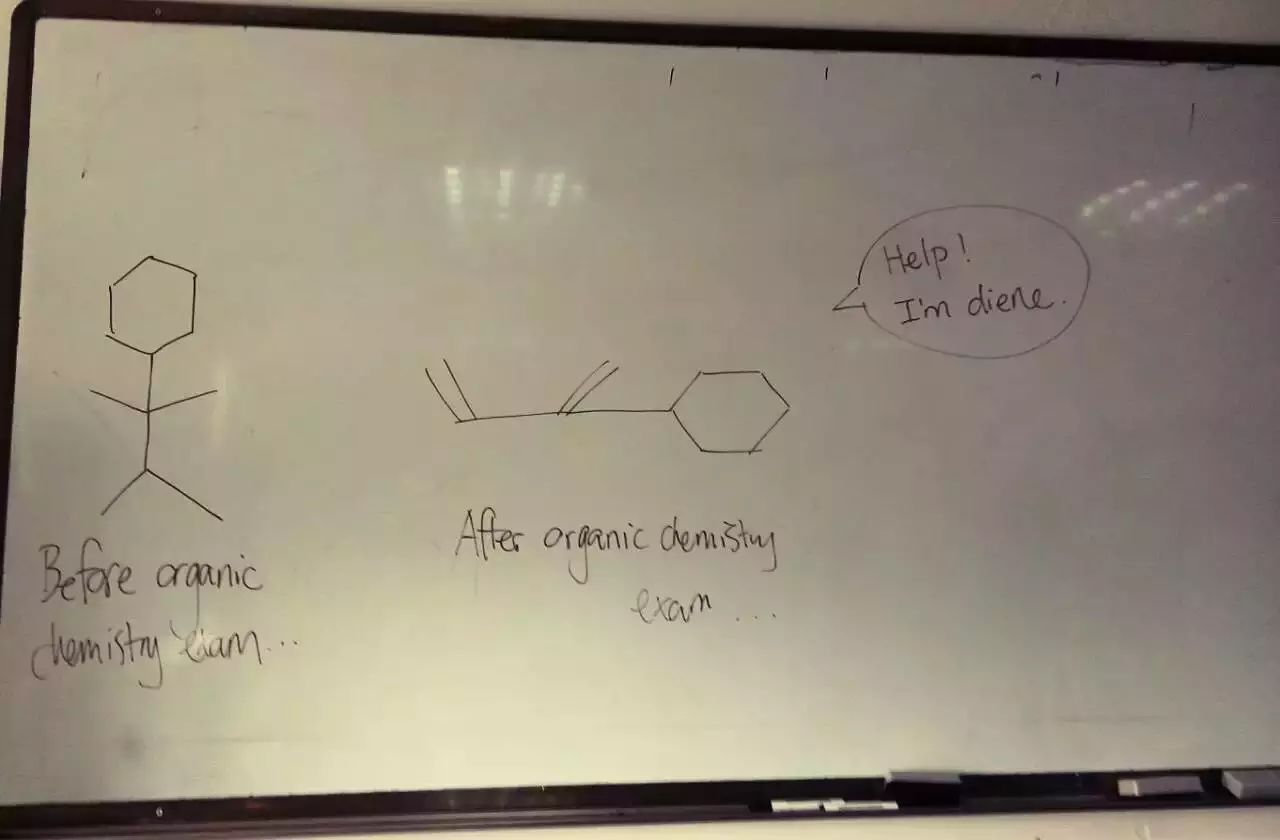 Help!
I'm diene.
Before organic
chemistry exam...
After organic chemistry
exam ...